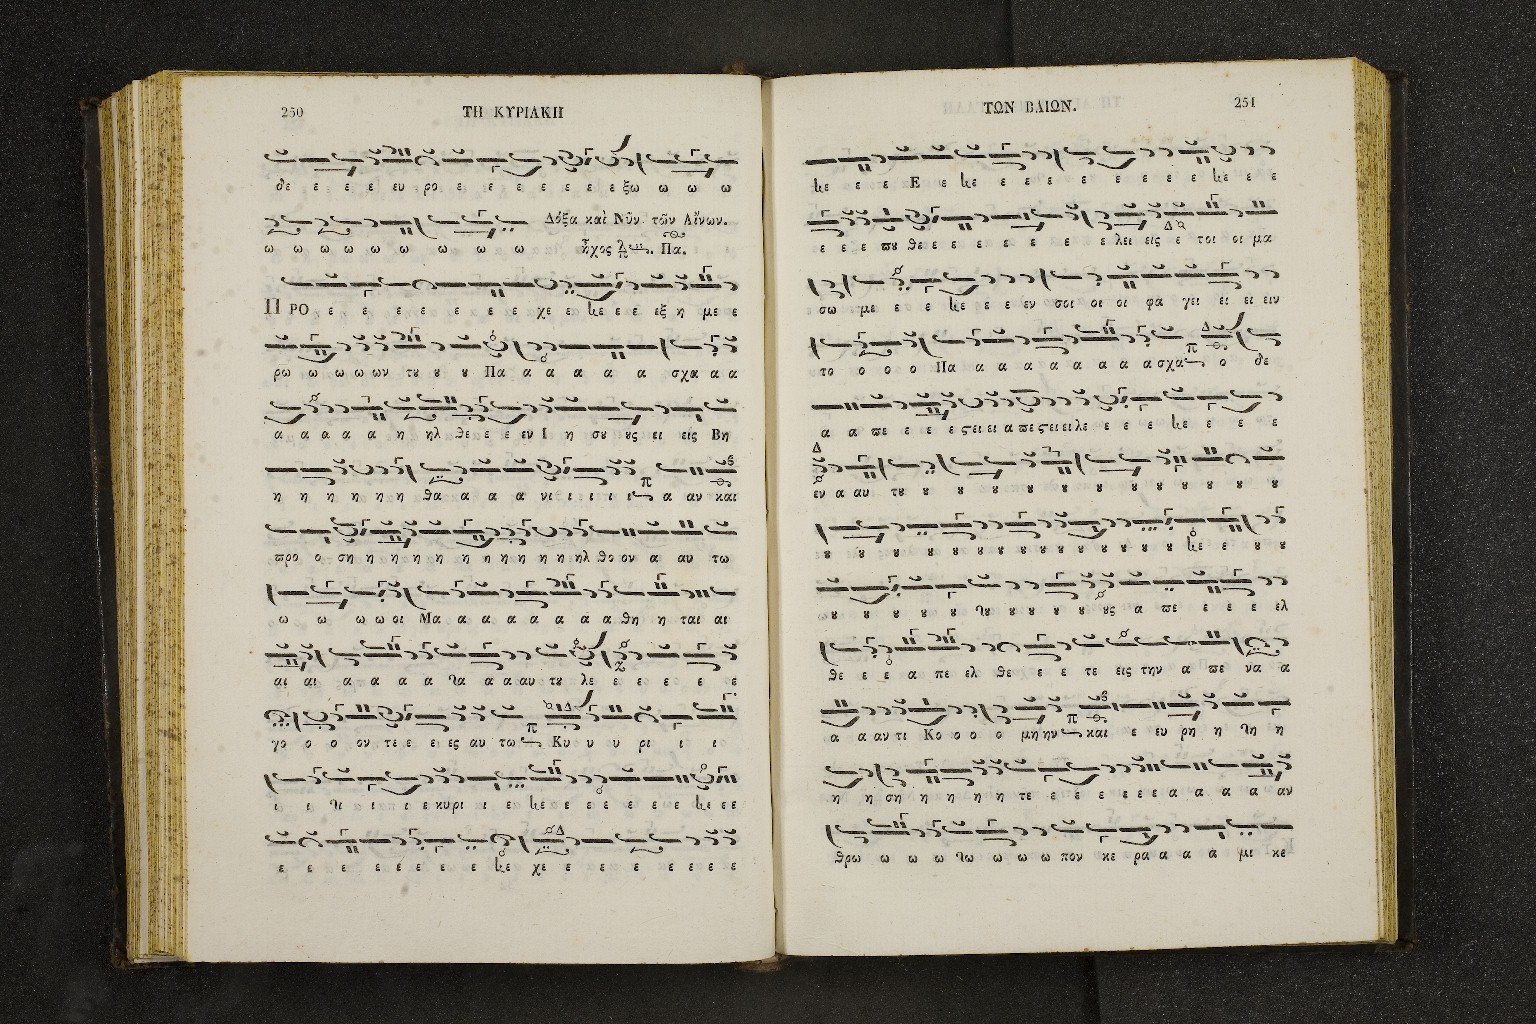 250
ΤΗ ΚΥΡΙΑΚΗ
δε ε ε ε ευ ρο ε ε ε ε ε ε ε ξω ω ω ω
Δόξα καὶ Νῦν τῶν Αἴνων.
ω ω ω ω ω ω ω ω ω ἦχος Πα.
Π ΡΟ ε ε ε ε ε ε ε χε ε ε ε ε εξ η με ε
ρω ω ω ω ων τȣ ȣ ȣ Πα α α α α α σχα α α
α α α α α η ηλ θε ε ε εν Ι η σȣ ȣς ει εις Βη
η η η η η η θα α α α νι ι ι ι ι ι α αν και
προ ο ση η η η η η η η η η ηλ θο ον α αυ τω
ω ω ω ω οι Μα α α α α α α α θη η ται αι
αι αι α α α α α α α αυ τȣ λε ε ε ε ε ε
γο ο ο ο ον τε ε ε ες αυ τω Κυ υ υ ρι ι ι
ι ι ι ι ι ε κυρι ι ε ε ε ε ε ε ε ε ε
ε ε ε ε ε ε ε ε χε ε ε ε ε ε ε ε
251
ΤΩΝ ΒΑΙΩΝ.
ε ε Ε ε ε ε ε ε ε ε ε ε ε ε
ε ε ε πȣ θε ε ε ε ε ε ε ε ε λει εις ε τοι οι μα
σω με ε ε ε ε εν σοι οι οι φα γει ει ει ειν
το ο ο ο Πα α α α α α α α α σχα ο δε
α α πε ε ε ε ςει ει α πε ςει ει λε ε ε ε ε ε ε
εν α αυ τȣ ȣ ȣ ȣ ȣ ȣ ȣ ȣ ȣ ȣ ȣ ȣ
ȣ ȣ ȣ ȣ ȣ ȣ ȣ ȣ ȣ ȣ ȣ ȣ ȣ ȣ ȣ ε ȣ ȣ
ȣ ȣ ȣ ȣ ȣ ȣ ȣ ȣ ȣ ȣς α πε ε ε ε ελ
θε ε ε α πε ελ θε ε ε τε εις την α πε να α
α α αν τι Κο ο ο ο μη ην και ε ευ ρη η η
η η ση η η η η τε ε ε ε ε ε ε α α α α αν
θρω ω ω ω ω ω ω πον κε ρα α α α μι κε